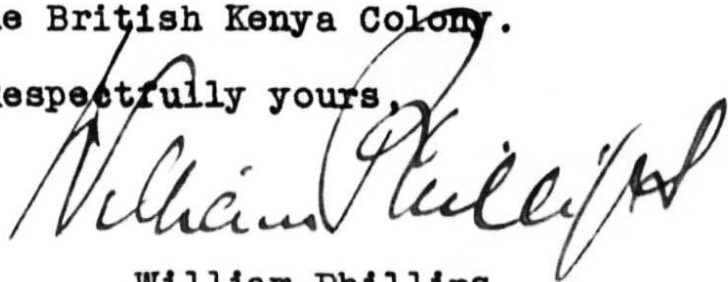 e British Kenya Colony.
espectfully yours,
William Phillips
William Phillips